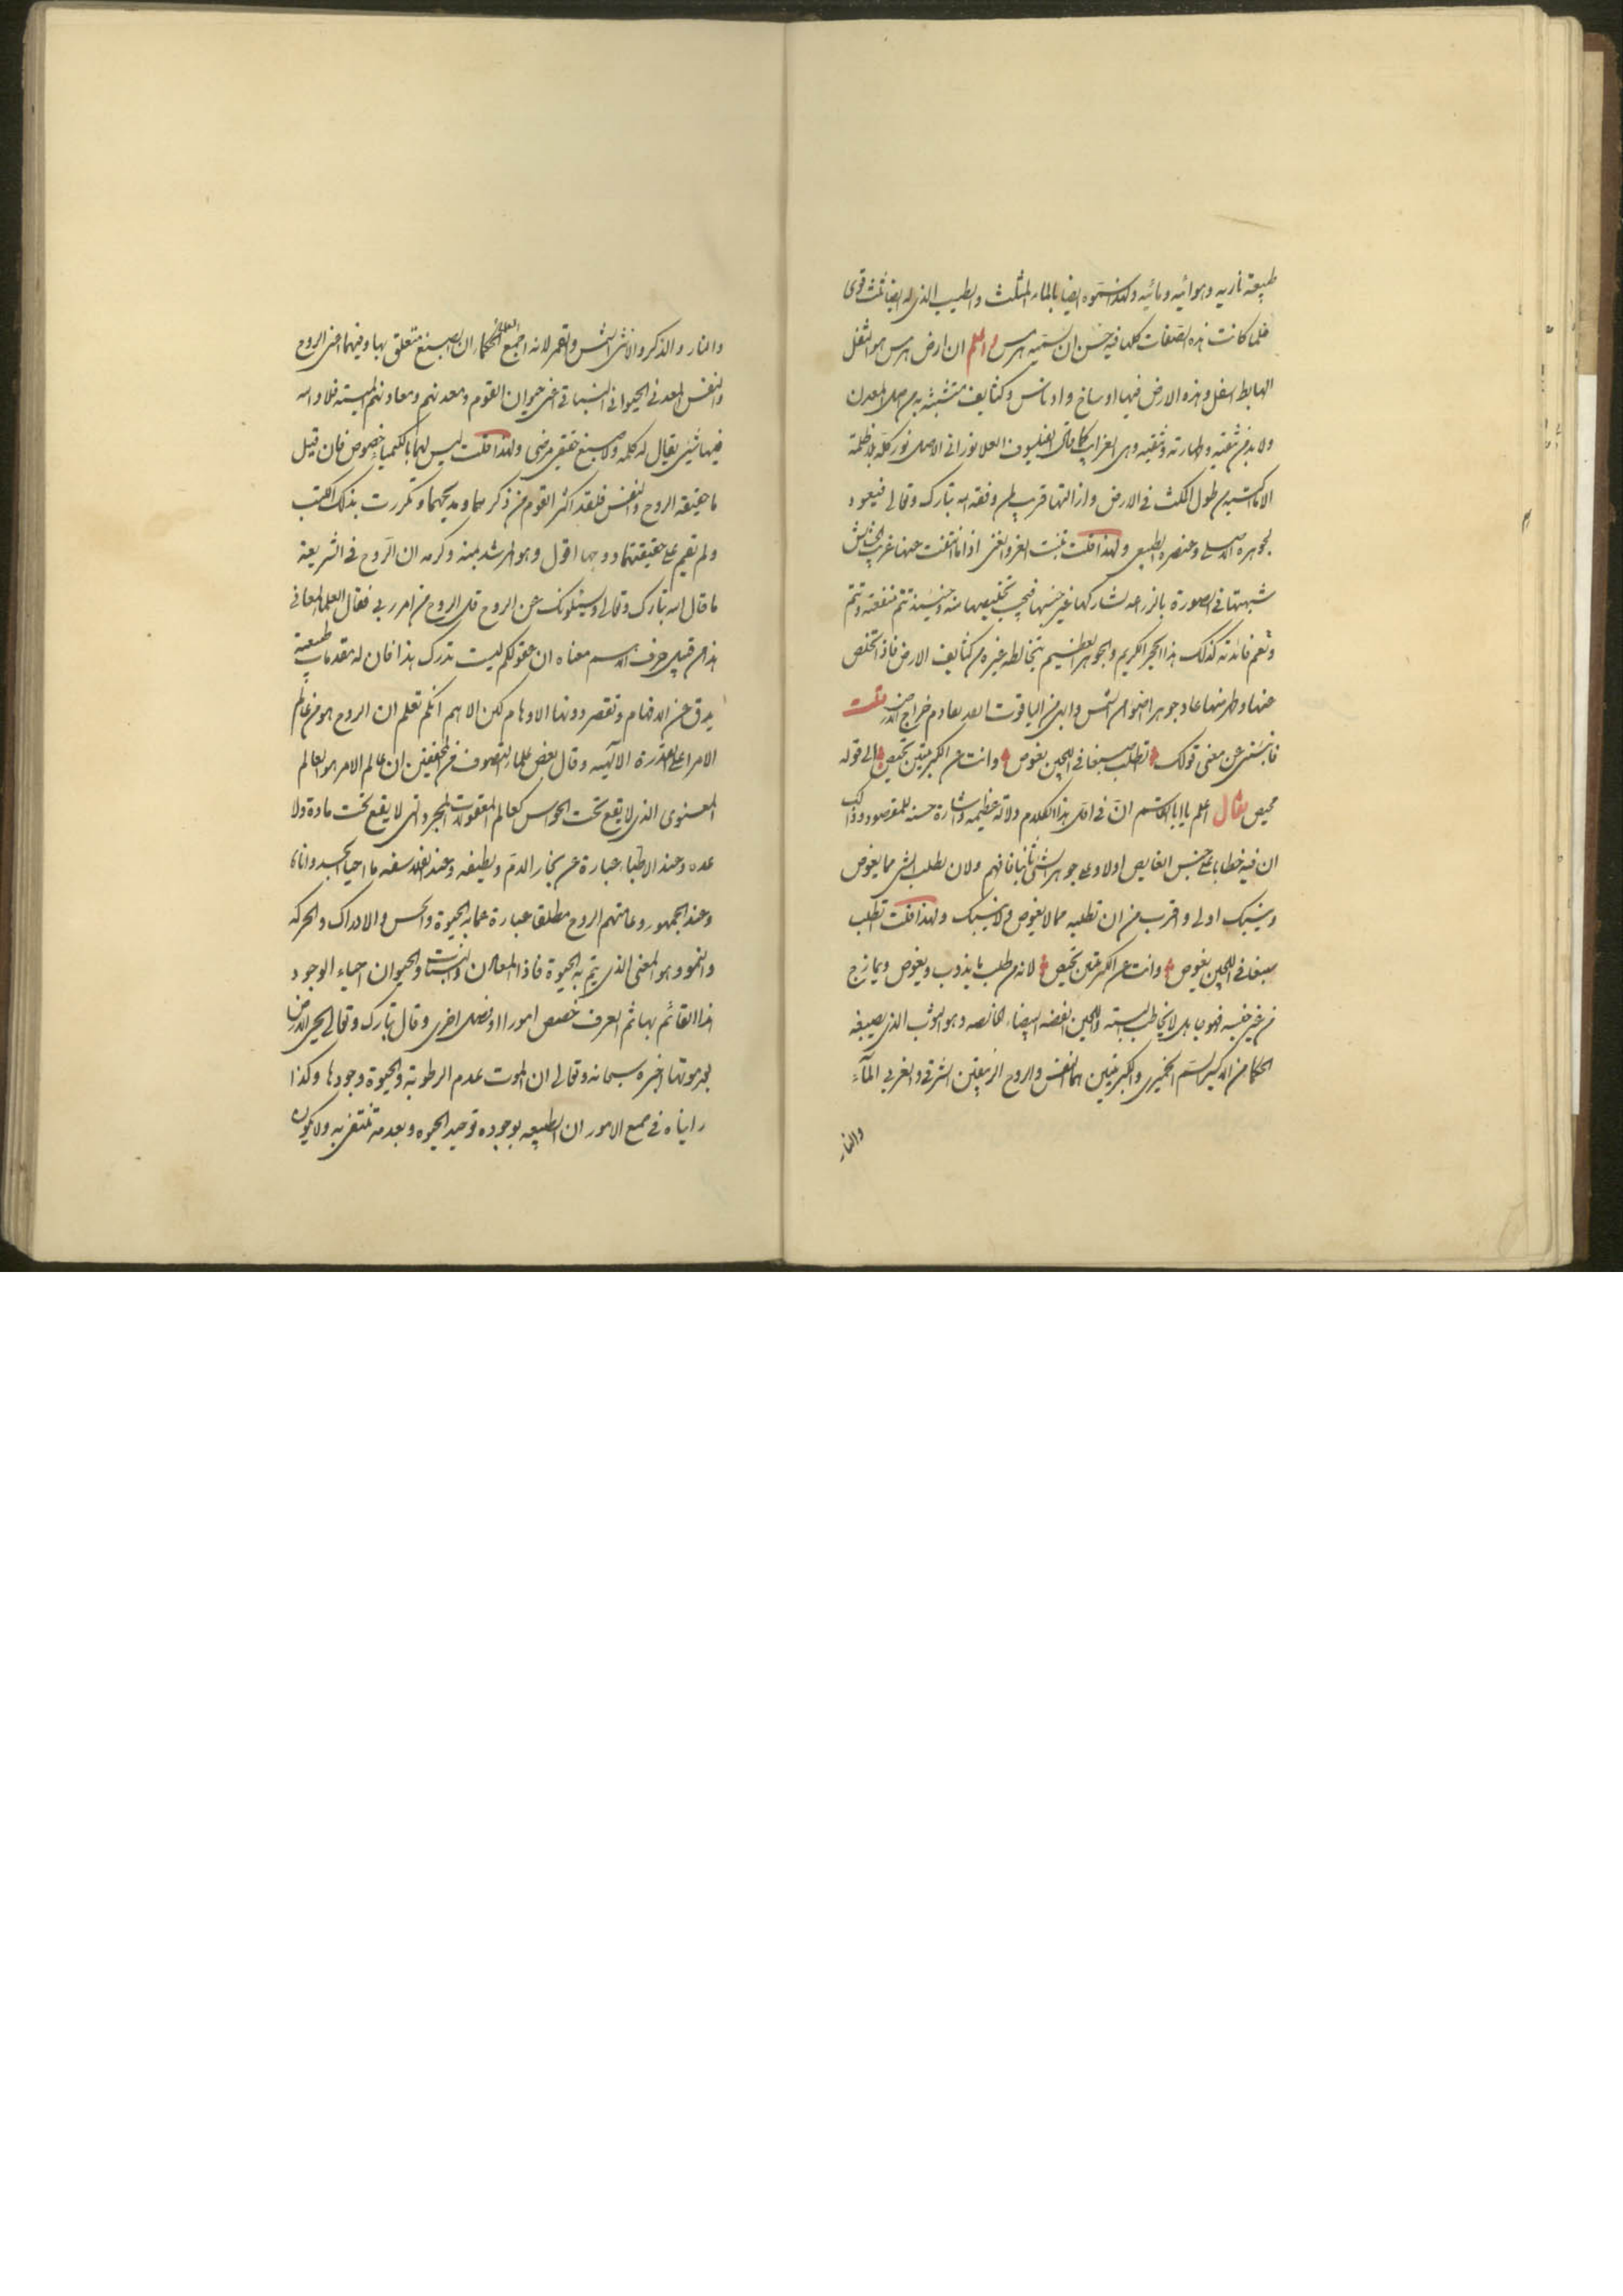 طبيعة ناريه وهوائيه ومائيه ولهذا سموه ايضا بالماء المثلث والطيب الذى له ايضا ثلث قوى
فلما كانت هذه الصفات كلها فيه حسن ان نسميه هرمس واعلم ان ارض هرمس هو الثفل
الهابط اسفل وهذه الارض فيها اوساخ وادناس وكثايف متشبثه به من اصل المعدن
ولا بد من تنقيه وطهارته وتنقيه وهى الغرايب كما قال الفيلسوف العلا نورانى الاصل نور كله بلا ظلمة
الا ما اكتسبه من طول المكث فى الارض وازالتها قريب لمن وفقه الله تبارك وتعالى فيعود
لجوهره الاصلى وعنصره الطبيعى ولهذا قلت نبت العز والغنى اذا ما انتفت عنها غريب الحشايش
شبهتها فى الصورة بالزراعه لشاركها غير جنسها فيجب تخليصها منه وحينئذ تتم منفعته وتتم
وتعم فائدته كذلك هذا الحجر الكريم والجوهر العظيم يخالطه غيره من كثايف الارض فاذا تخلص
عنها وطهر منها عاد جوهرا اضوا من الشمس وابهى من الياقوت
فاخبرنى عن معنى قولك تطلب صبغا فى اللجين يغوص وانت عن الكبريتين تحيص الى قوله
محيص فقال اعلم يا ابا القاسم ان فى اول هذا الكلام دلالة عظيمه واشارة حسنه للمقصود وذلك
ان فيه خطابا على جنس الغايص اولا وعلى جوهر الشئ ثانيا فافهم ولان يطلب الشئ مما يغوص
وينسبك اولى واقرب من ان تطلبه مما لا يغوص ولا ينسبك ولهذا قلت تطلب
صبغا فى اللجين يغوص وانت عن الكبريتين تحيص لانه من طلب ما يذوب ويغوص ويمازج
من غير جنسه فهو جاهل لا يخاطب البته واللجين الفضه البيضاء الخالصه وهو الثوب الذى يصبغه
الحكما من الاكسير السم الخميرى والكبريتين هما النفس والروح الزيبقين الشرقى والغربى المآء
والنار
والنار والذكر والانثى الشمس والقمر لانه اجمع العلماء الحكماء ان الصبغ متعلق بها وفيهما اعنى الروح
والنفس المعدنى الحيوانى النباتى اعنى حيوان القوم ومعدنهم ومعاونهم الميته فلا والله
فيها شئ يقال له كله ولا صبغ حقيقى مرضى ولهذا قلت ليس لهما بالكيميا خصوص فان قيل
ما حقيقة الروح والنفس فلقد اكثر القوم من ذكرهما ومديحهما وتكررت بذلك الكتب
ولم نقيم على حقيقتهما ووجها اقول وهو المرشد بمنه وكرمه ان الروح فى الشريعة
ما قال الله تبارك وتعالى ويسئلونك عن الروح قل الروح من امر ربى فقال العلما المعانى
هذا من قبيل حرف الاسم معناه ان عقولكم ليست تدرك هذا فان له مقدمات طبيعية
يدق عن الافهام وتقصر دونها الاوهام لكن الاهم انكم تعلم ان الروح هو من عالم
الامر اعلى القدرة الالهيه وقال بعض علماء التصوف من المحققين ان عالم الامر هو العالم
المعنوى الذى لا يقع تحت الحواس كعالم المعقولات المجرد التى لا يقع تحت مادة ولا
عده وعند الاطباء عبارة عن بخار الدم ولطيفه وعند الفلاسفه ما احيا الجسد واناه
وعند الجمهور وعامتهم الروح مطلق عبارة عما به الحيوة والحس والادراك والحركه
والنمو وهو المعنى الذى يتم به الحيوة فاذا المعادن والنبات والحيوان احياء الوجود
هذا القائم بها ثم العرف خصص امورا وفصل اخرى وقال تبارك وتعالى يحى الارض
بعد موتها اخبره سبحانه وتعالى ان الموت عدم الرطوبة والحيوة وجودها وكذا
راينا فى جميع الامور ان الطبيعه بوجوده توجد الحيوه وبعدمه تنتفى به ولا يكون